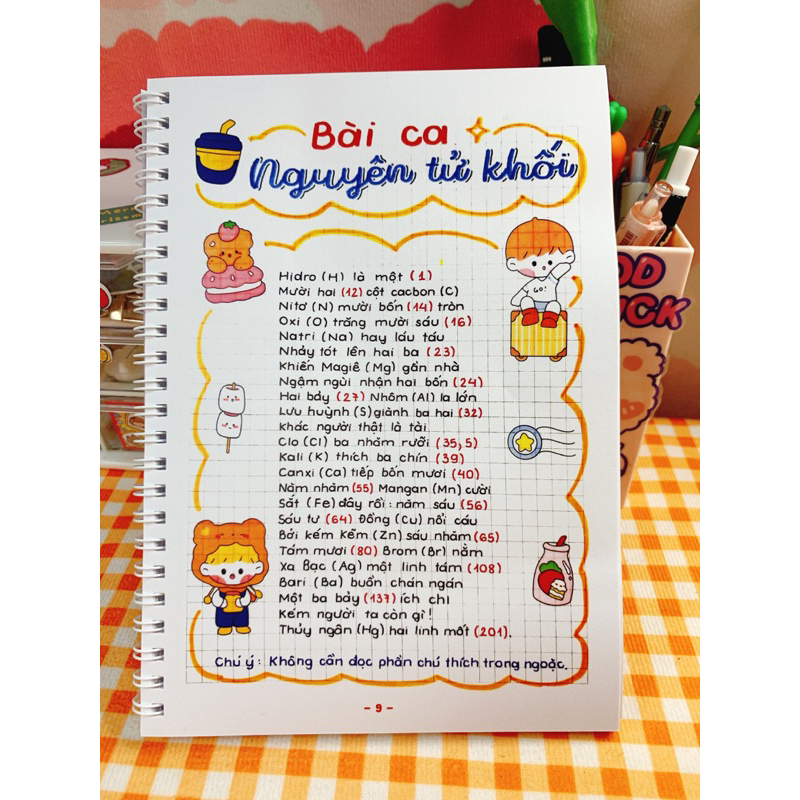 Bài ca
Nguyên tử khối
Hidro (H) là một (1)
Mười hai (12) cột cacbon (C)
Nitơ (N) mười bốn (14) tròn
Oxi (O) trăng mười sáu (16)
Natri (Na) hay láu táu
Nhảy tót lên hai ba (23)
Khiến Magiê (Mg) gần nhà
Ngậm ngùi nhận hai bốn (24)
Hai bảy (27) Nhôm (Al) la lớn
Lưu huỳnh (S) giành ba hai (32)
Khác người thật là tài
Clo (Cl) ba nhăm rưỡi (35,5)
Kali (K) thích ba chín (39)
Canxi (Ca) tiếp bốn mươi (40)
Năm nhăm (55) Mangan (Mn) cười
Sắt (Fe) đây rồi: năm sáu (56)
Sáu tư (64) Đồng (Cu) nổi cáu
Bởi kém Kẽm (Zn) sáu nhăm (65)
Tám mươi (80) Brom (Br) nằm
Xa Bạc (Ag) một linh tám (108)
Bari (Ba) buồn chán ngán
Một ba bảy (137) ích chi
Kém người ta còn gì!
Thủy ngân (Hg) hai linh mốt (201).
Chú ý: Không cần đọc phần chú thích trong ngoặc.
- 9 -
GO!